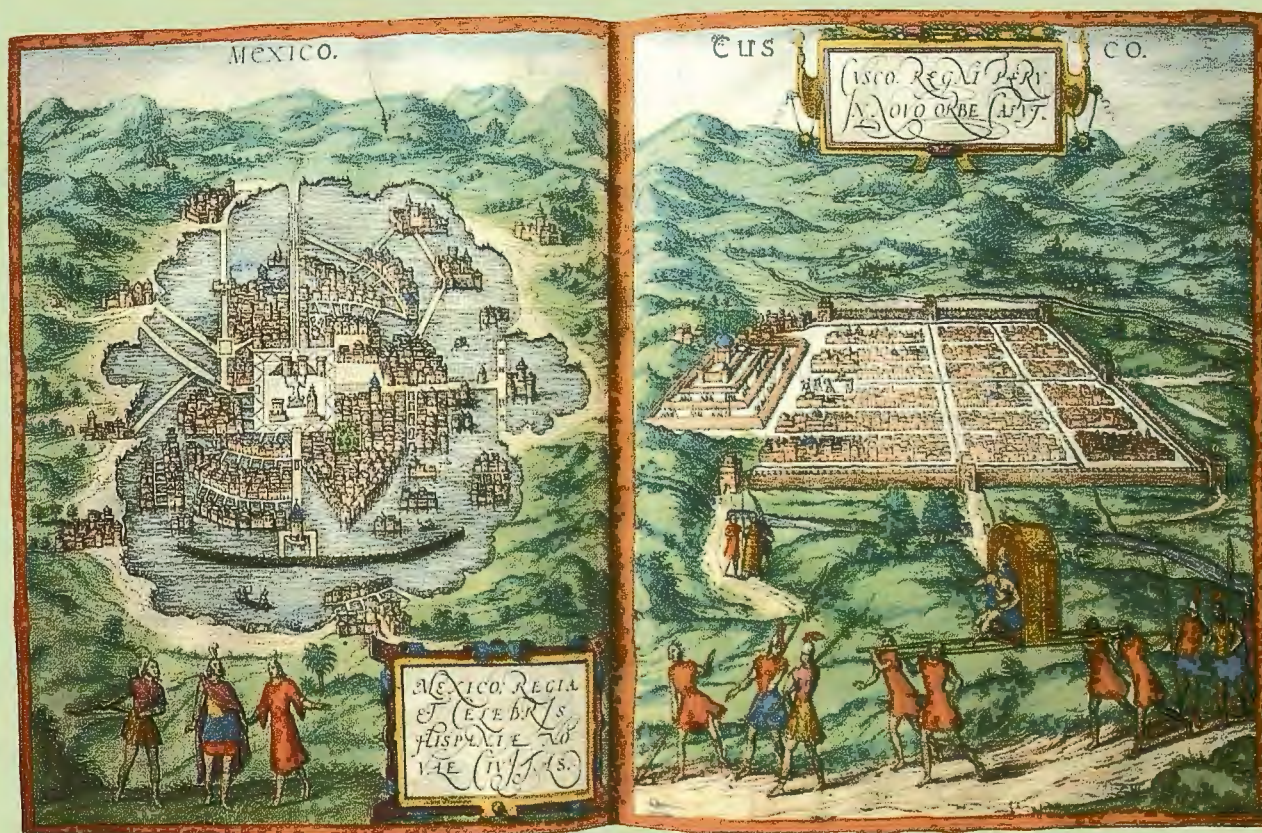 MEXICO.
MEXICO, REGIA
ET CELEBRIS
HISPANIÆ NO
VÆ CIVITAS.
CUS CO.
CVSCO, REGNI PERV
IN NOVO ORBE CAPVT.